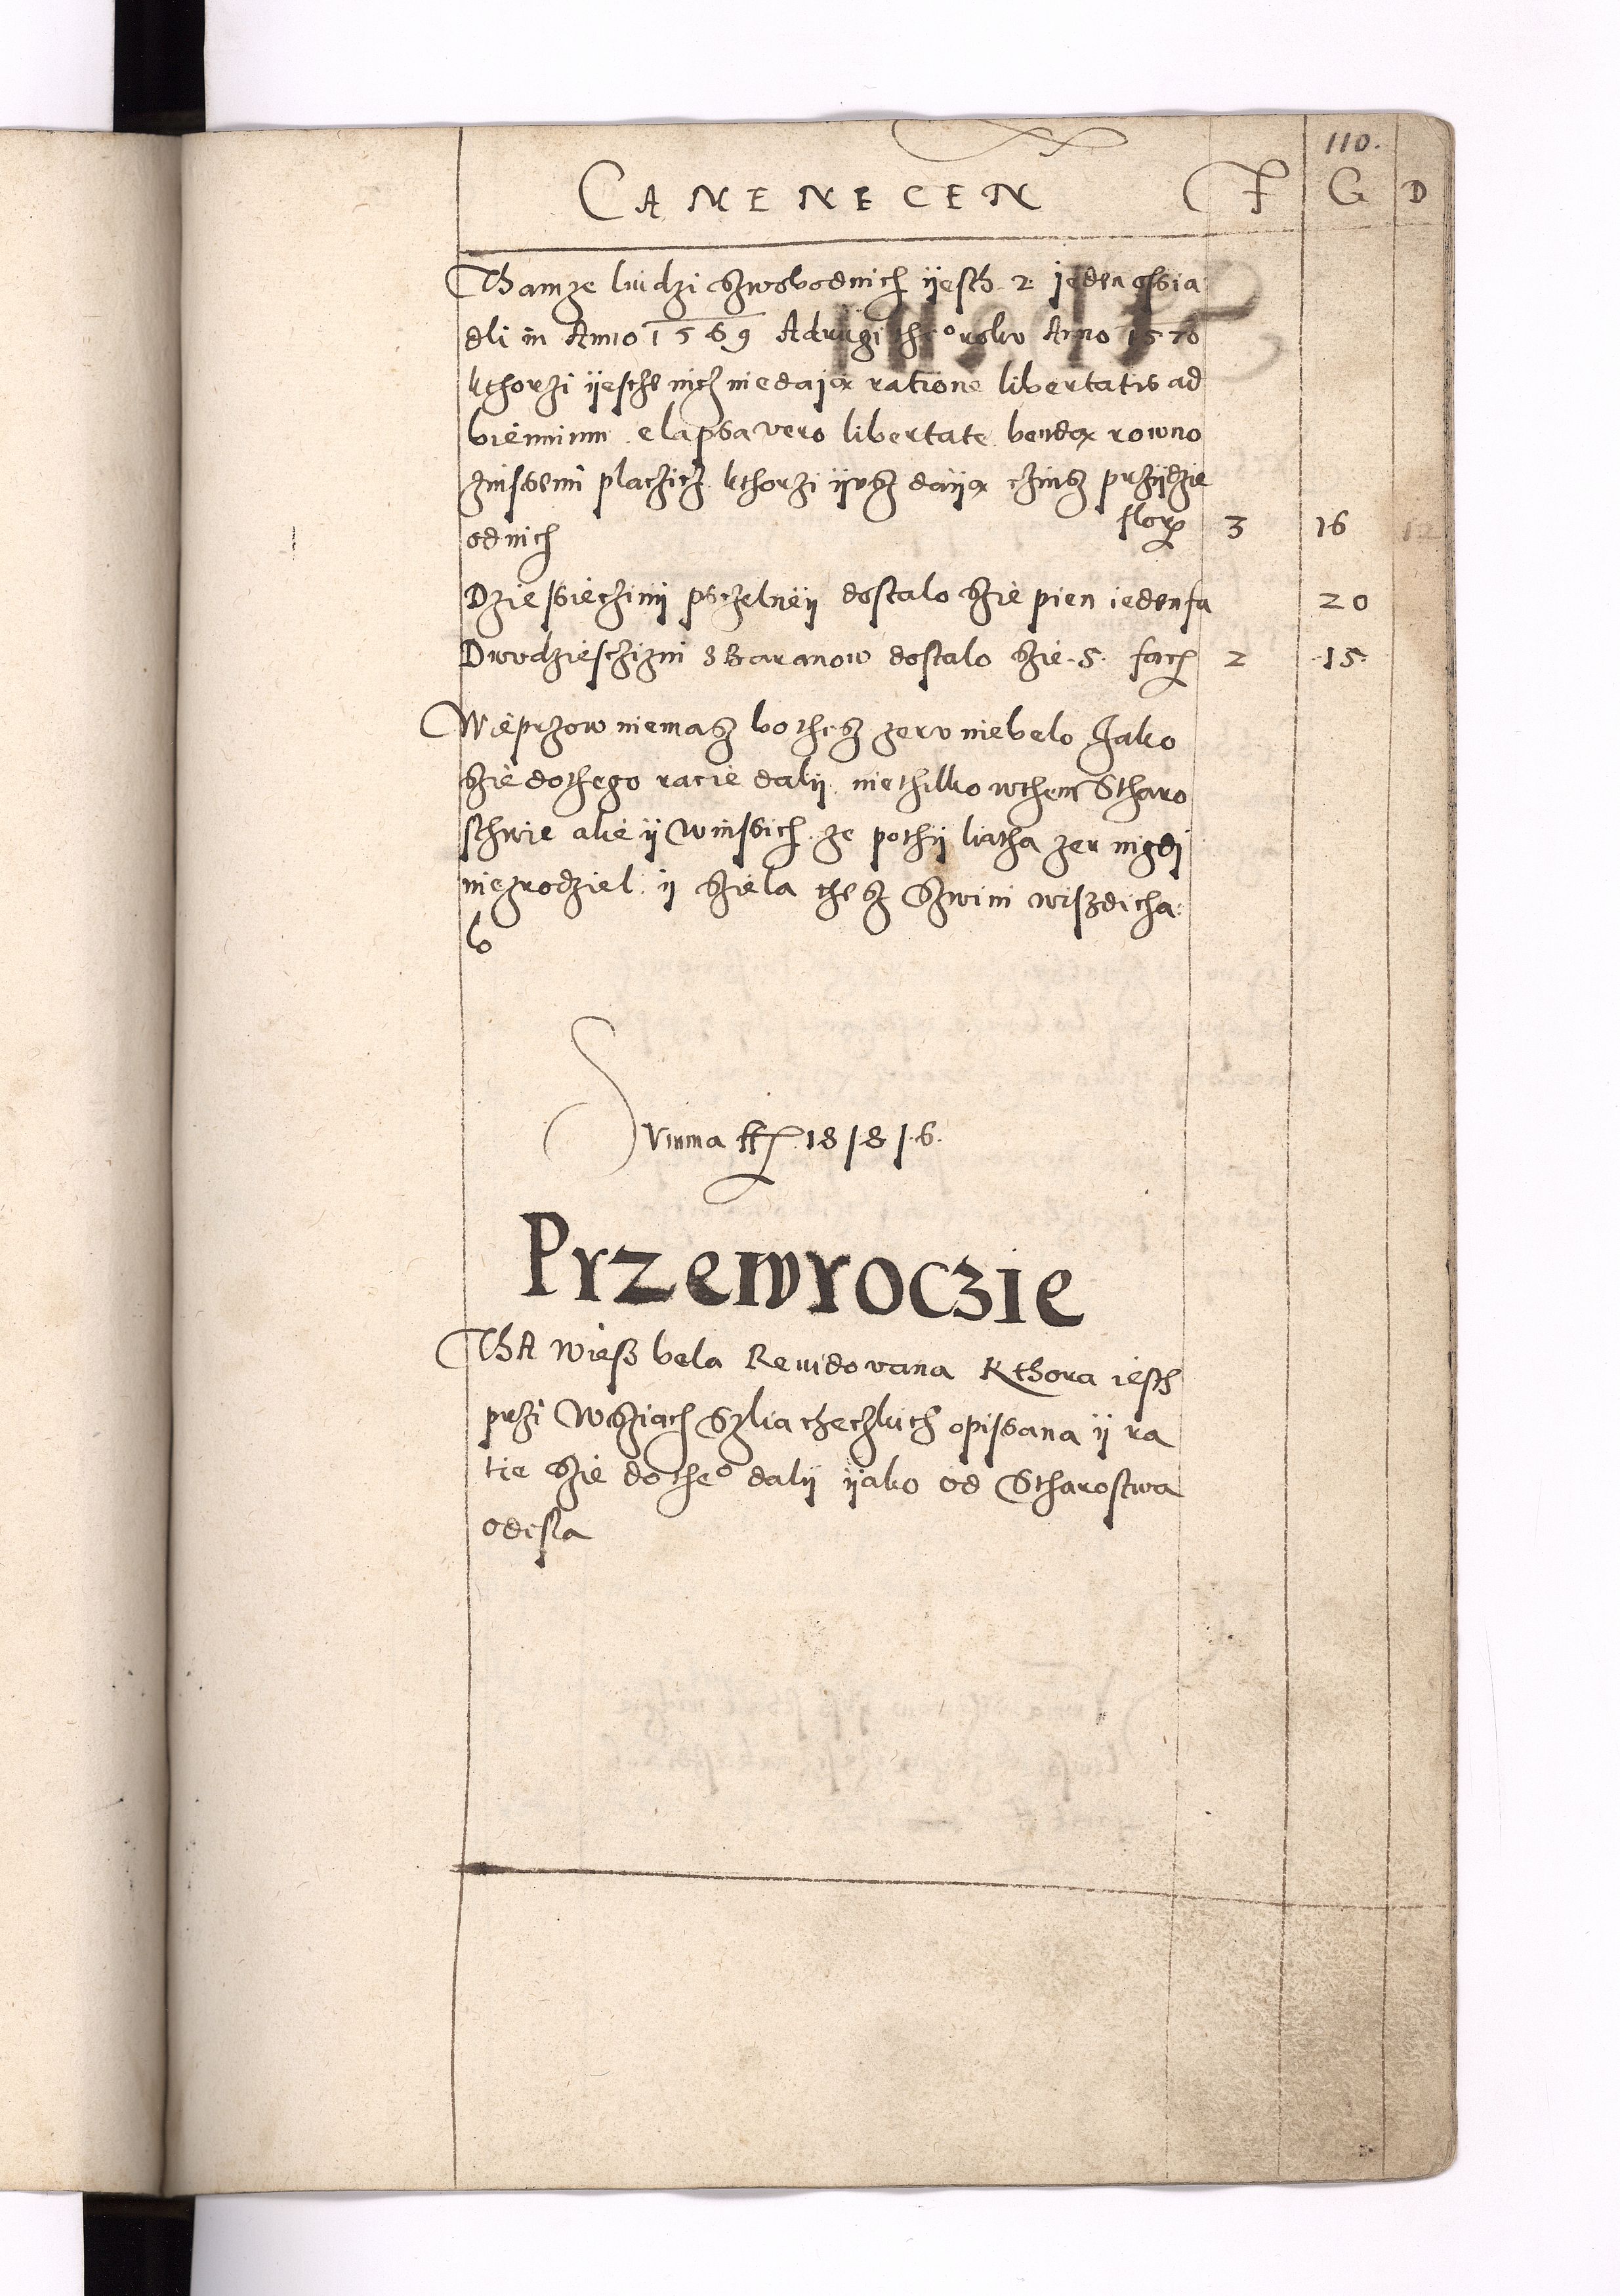 110.
CAMENECEN F G D
Thamze liudzi Szwobodnich ÿesth 2 jeden ossia:
dli in Anno 1569 A drugi the° roku Anno 1570
kthorzi ÿescze nicz niedaja ratione libertatis ad
biennium elapsa vero libertate benda rowno
zinssemi placzicz kthorzi ÿusz daÿa czinsz przÿdzie
odnich flor 3 16 12
Dziessieczinÿ psczelneÿ dostalo szie pien ieden fa 20
Dwudzieschizni Baranow dostalo szie 5. fac 2 15
Wieprzow niemasz bo thesz zeru niebelo Jako
szie dothego racie dalÿ niethilko wthem Stharo
sthwie alie ÿ w inssich ze pothÿ liatha zer nigdi
niezrodziel ÿ sziela thesz Szwini wiszdicha:
lo
Summa ff 18/8/6.
Przewroczie
ThA wiess bela Revidovana Kthora iesth
przi wsziach Szliacheczkich opissana ÿ ra
tie szie dothe° dalÿ ÿako od Stharostwa
odesla